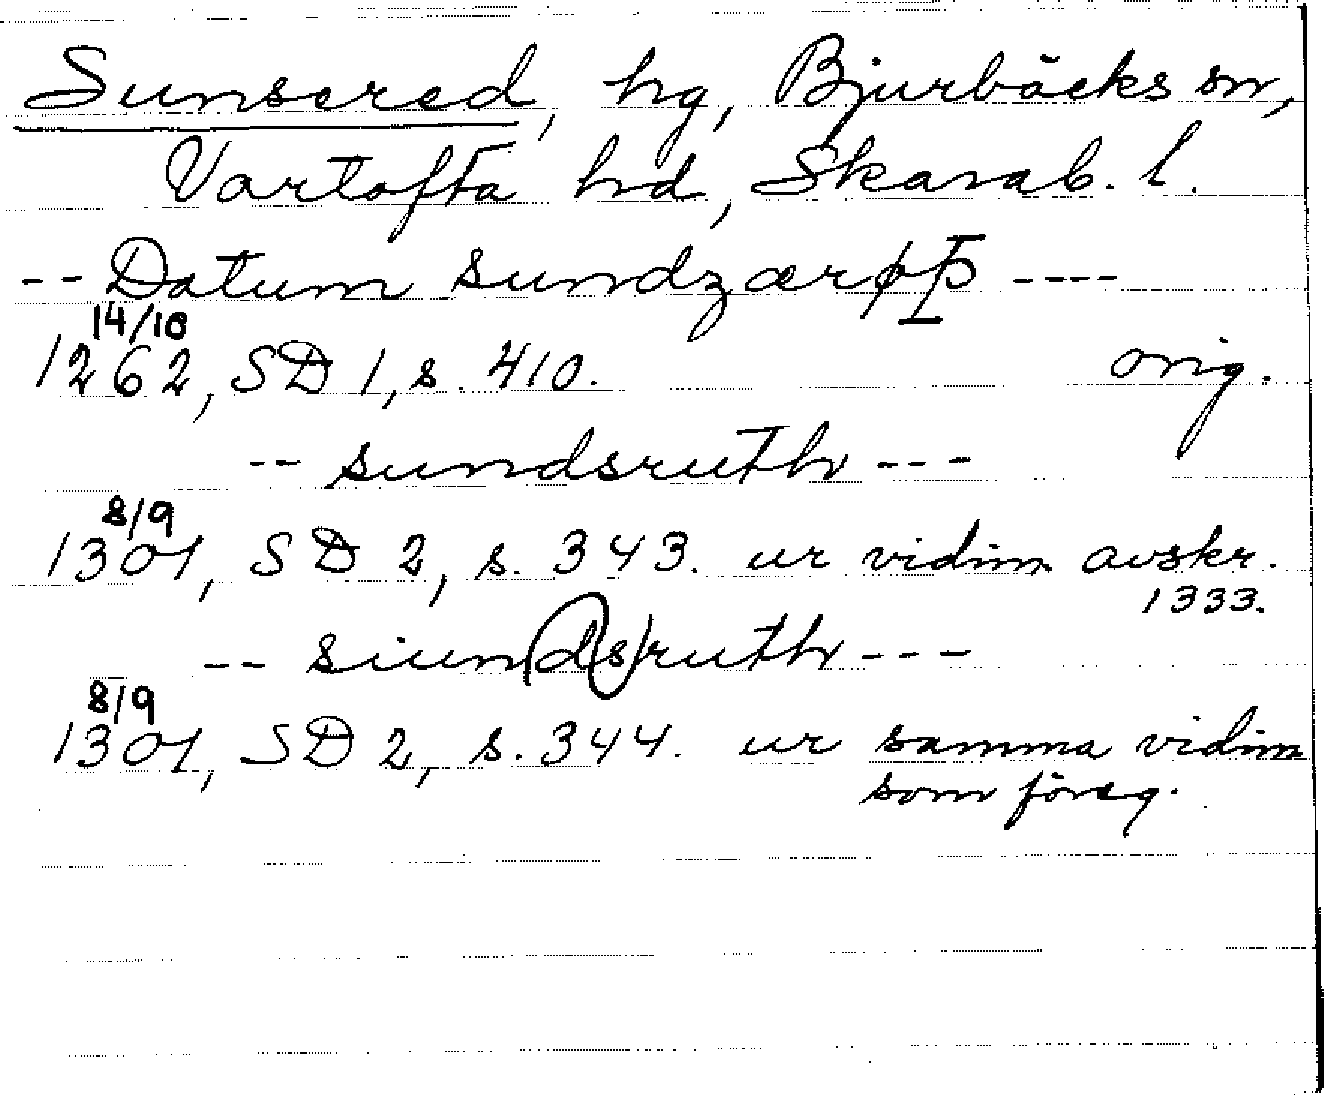 Sunsered, hg, Bjurbäcks sn,
Vartofta hd, Skarab. l.
-- Datum sundzærøþ ----
14/10
1262, SD 1, s. 410. orig.
-- sundsruth ---
8/9
1301, SD 2, s. 343. ur vidim. avskr.
1333.
-- siun(ds)ruth ---
8/9
1301, SD 2, s. 344. ur samma vidim
som föreg.